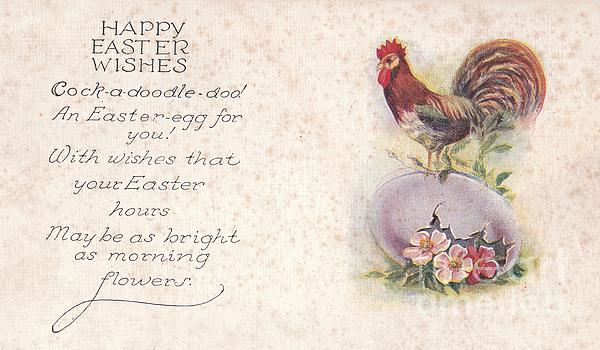 HAPPY
EASTER
WISHES
Cock-a-doodle-doo!
An Easter-egg for
you!
With wishes that
your Easter
hours
May be as bright
as morning
flowers.